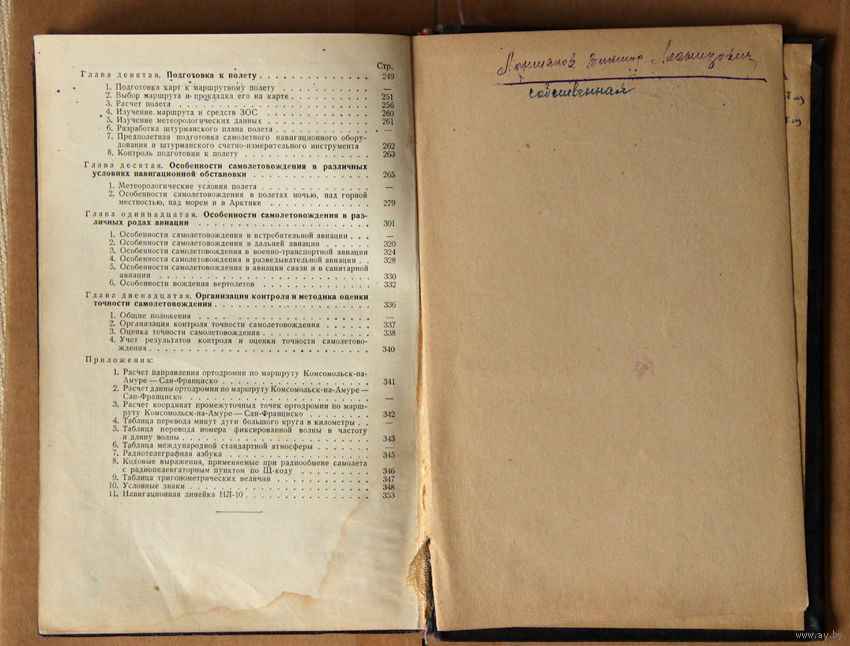 Стр.
Глава девятая. Подготовка к полету . . . . . . . . . . . . 249
1. Подготовка карт к маршрутному полету . . . . . . . . —
2. Выбор маршрута и прокладка его на карте . . . . . . . 251
3. Расчет полета . . . . . . . . . . . . . . . . . . . 256
4. Изучение маршрута и средств ЗОС . . . . . . . . . . 260
5. Изучение метеорологических данных . . . . . . . . . . 261
6. Разработка штурманского плана полета . . . . . . . . . —
7. Предполетная подготовка самолетного навигационного обору-
дования и штурманского счетно-измерительного инструмента 262
8. Контроль подготовки к полету . . . . . . . . . . . . 263
Глава десятая. Особенности самолетовождения в различных
условиях навигационной обстановки . . . . . . . . . . . . 265
1. Метеорологические условия полета . . . . . . . . . . —
2. Особенности самолетовождения в полетах ночью, над горной
местностью, над морем и в Арктике . . . . . . . . . . 279
Глава одиннадцатая. Особенности самолетовождения в раз-
личных родах авиации . . . . . . . . . . . . . . . . . 301
1. Особенности самолетовождения в истребительной авиации . . . —
2. Особенности самолетовождения в дальней авиации . . . . . . 320
3. Особенности самолетовождения в военно-транспортной авиации 324
4. Особенности самолетовождения в разведывательной авиации . . 328
5. Особенности самолетовождения в авиации связи и в санитарной
авиации . . . . . . . . . . . . . . . . . . . . . 330
6. Особенности вождения вертолетов . . . . . . . . . . . 332
Глава двенадцатая. Организация контроля и методика оценки
точности самолетовождения . . . . . . . . . . . . . . . 336
1. Общие положения . . . . . . . . . . . . . . . . . —
2. Организация контроля точности самолетовождения . . . . . . 337
3. Оценка точности самолетовождения . . . . . . . . . . . 338
4. Учет результатов контроля и оценки точности самолетово-
ждения . . . . . . . . . . . . . . . . . . . . . 340
Приложения:
1. Расчет направления ортодромии по маршруту Комсомольск-на-
Амуре — Сан-Франциско . . . . . . . . . . . . . . . 341
2. Расчет длины ортодромии по маршруту Комсомольск-на-Амуре —
Сан-Франциско . . . . . . . . . . . . . . . . . . —
3. Расчет координат промежуточных точек ортодромии по марш-
руту Комсомольск-на-Амуре — Сан-Франциско . . . . . . . 342
4. Таблица перевода минут дуги большого круга в километры . . —
5. Таблица перевода номера фиксированной волны в частоту
и длину волны . . . . . . . . . . . . . . . . . . 343
6. Таблица международной стандартной атмосферы . . . . . . —
7. Радиотелеграфная азбука . . . . . . . . . . . . . . 345
8. Кодовые выражения, применяемые при радиообмене самолета
с радиопеленгаторным пунктом по Щ-коду . . . . . . . . 346
9. Таблица тригонометрических величин . . . . . . . . . . 347
10. Условные знаки . . . . . . . . . . . . . . . . . . 348
11. Навигационная линейка НЛ-10 . . . . . . . . . . . . 353
Леонидович
собственная
www.ay.by